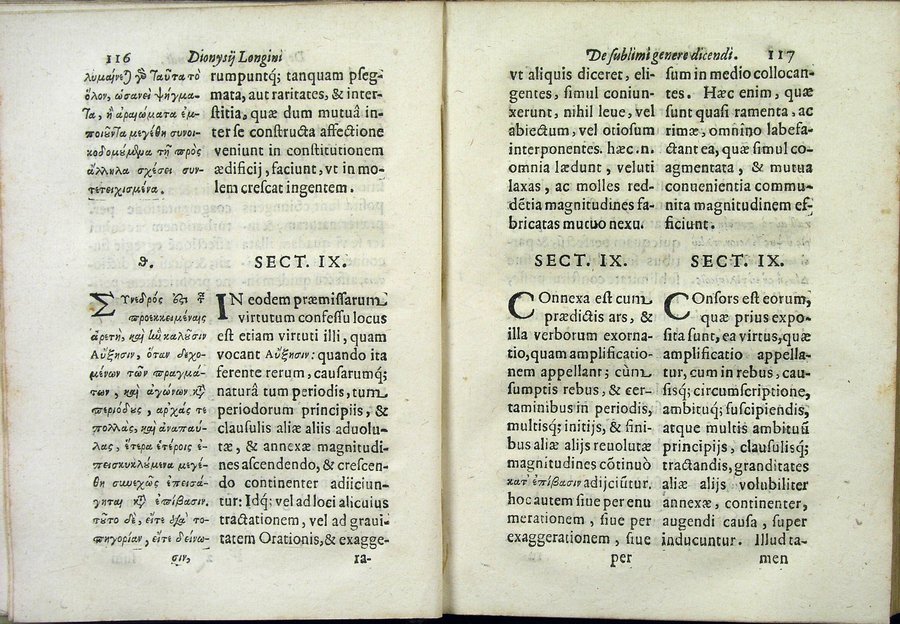 116 Dionysij Longini
λυμαίνεται γὸ ταῦτα τὸ
ὅλον, ὡσανεὶ ψήγμα-
τα, ἢ ἀραιώματα ἐμ-
ποιοῦντα μεγέθη συνοι-
κοδομούμενα τῇ πρὸς
ἄλληλα σχέσει συν-
τετειχισμένα.
rumpuntq; tanquam pseg-
mata, aut raritates, & inter-
stitia, quæ dum mutuâ in-
ter se constructa affectione
veniunt in constitutionem
ædificij, faciunt, vt in mo-
lem crescat ingentem.
θ.
Συνεδρός ἐστι
προεκκειμέναις
ἀρετὴ, καὶ ἣν καλοῦσιν
Αὔξησιν, ὅταν δεχο-
μένων τῶν πραγμά-
των, καὶ ἀγώνων κατὰ
περιόδους, ἀρχάς τε
πολλὰς, καὶ ἀναπαύ-
λας, ἕτερα ἑτέροις ἐ-
πεισκυκλούμενα μεγέ-
θη συνεχῶς ἐπεισά-
γηται κατ' ἐπίβασιν.
τοῦτο δὲ, εἴτε διὰ το-
πηγορίαν, εἴτε δείνω-
σιν,
SECT. IX.
IN eodem præmissarum
virtutum confessu locus
est etiam virtuti illi, quam
vocant Αὔξησιν: quando ita
ferente rerum, causarumq;
naturâ tum periodis, tum
periodorum principiis, &
clausulis aliæ aliis aduolu-
tæ, & annexæ magnitudi-
nes ascendendo, & crescen-
do continenter adiiciun-
tur: Idq; vel ad loci alicuius
tractationem, vel ad graui-
tatem Orationis, & exagge-
ra-
De sublimi genere dicendi. 117
vt aliquis diceret, eli-
gentes, simul coniun-
xerunt, nihil leue, vel
abiectum, vel otiosum
interponentes. hæc.n.
omnia lædunt, veluti
laxas, ac molles red-
dẽtia magnitudines fa-
bricatas mutuo nexu.
sum in medio collocan-
tes. Hæc enim, quæ
sunt quasi ramenta, ac
rimæ, omnino labefa-
ctant ea, quæ simul co-
agmentata, & mutua
conuenientia commu-
nita magnitudinem ef-
ficiunt.
SECT. IX.
COnnexa est cum
prædictis ars, &
illa verborum exorna-
tio, quam amplificatio-
nem appellant; cùm
sumptis rebus, & cer-
taminibus in periodis,
multisq; initijs, & fini-
bus aliæ alijs reuolutæ
magnitudines cõtinuò
κατ' ἐπίβασιν adijciũtur.
hoc autem siue per enu
merationem, siue per
exaggerationem, siue
per
SECT. IX.
COnsors est eorum,
quæ prius expo-
sita sunt, ea virtus, quæ
amplificatio appella-
tur, cum in rebus, cau-
sisq; circumscriptione,
ambituq; suscipiendis,
atque multis ambituũ
principijs, clausulisq;
tractandis, granditates
aliæ alijs volubiliter
annexæ, continenter,
augendi causa, super
inducuntur. Illud ta-
men